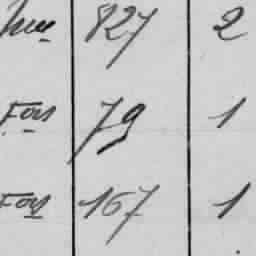 827 2
Fos 79 1
Fos 167 1